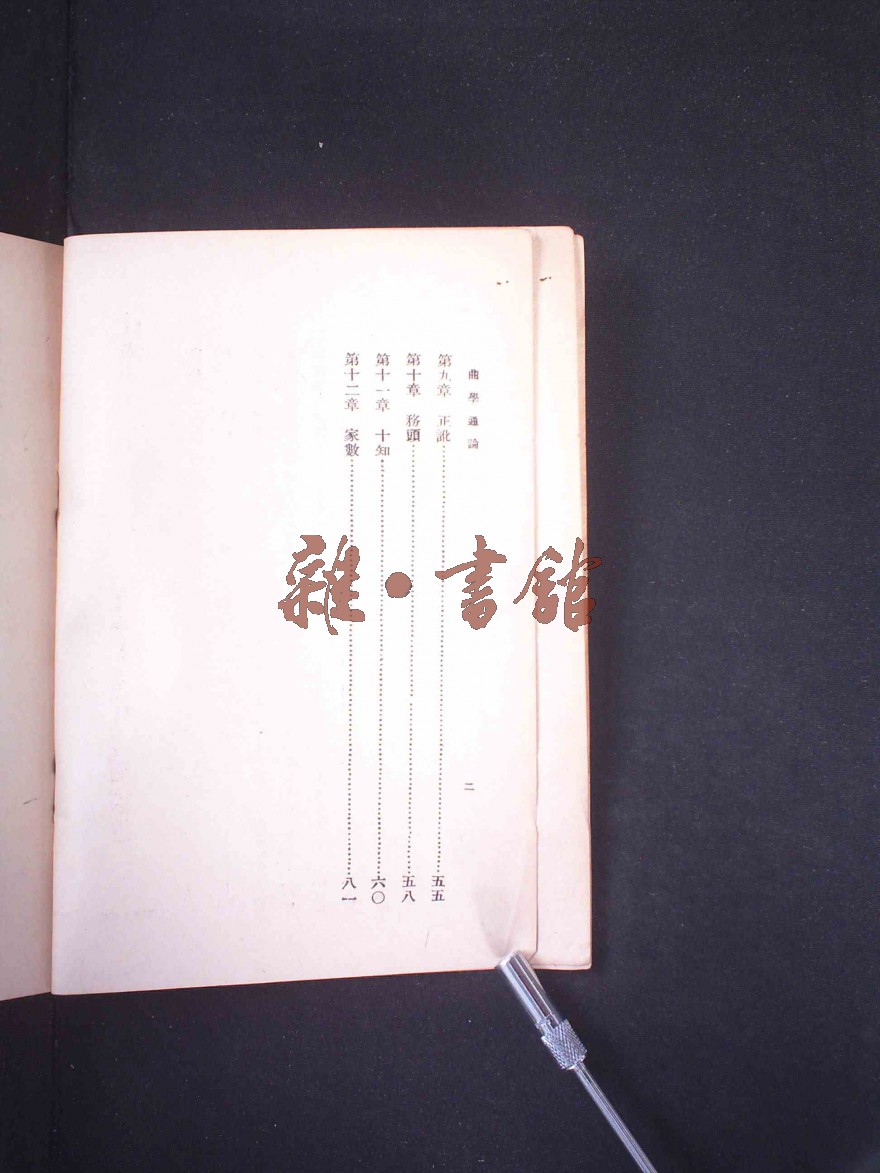 曲學通論
二
第九章 正訛……五五
第十章 務頭……五八
第十一章 十知……六〇
第十二章 家數……八一
雜·書館